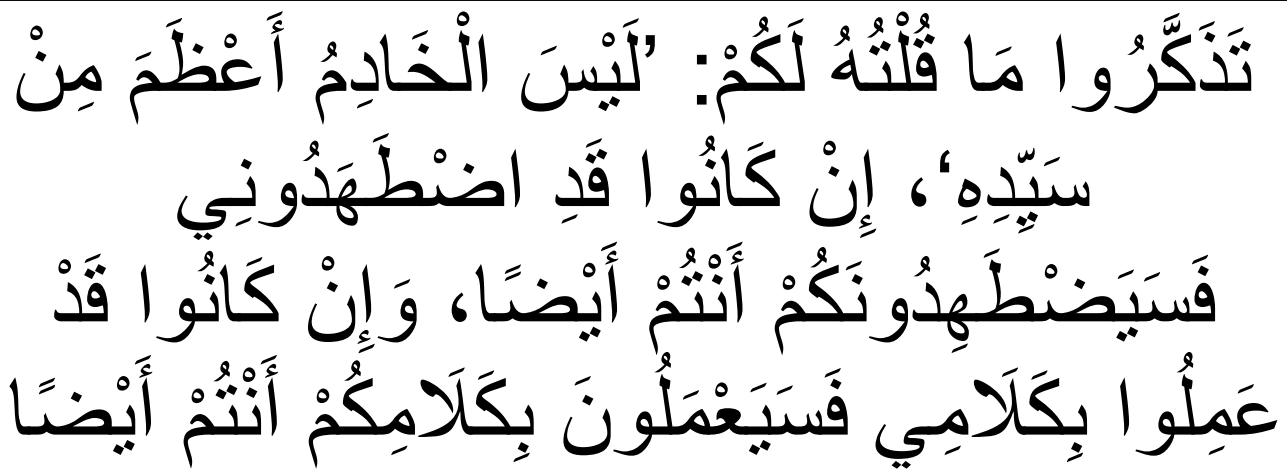 تَذَكَّرُوا مَا قُلْتُهُ لَكُمْ: ’لَيْسَ الْخَادِمُ أَعْظَمَ مِنْ
سَيِّدِهِ‘، إِنْ كَانُوا قَدِ اضْطَهَدُونِي
فَسَيَضْطَهِدُونَكُمْ أَنْتُمْ أَيْضًا، وَإِنْ كَانُوا قَدْ
عَمِلُوا بِكَلَامِي فَسَيَعْمَلُونَ بِكَلَامِكُمْ أَنْتُمْ أَيْضًا